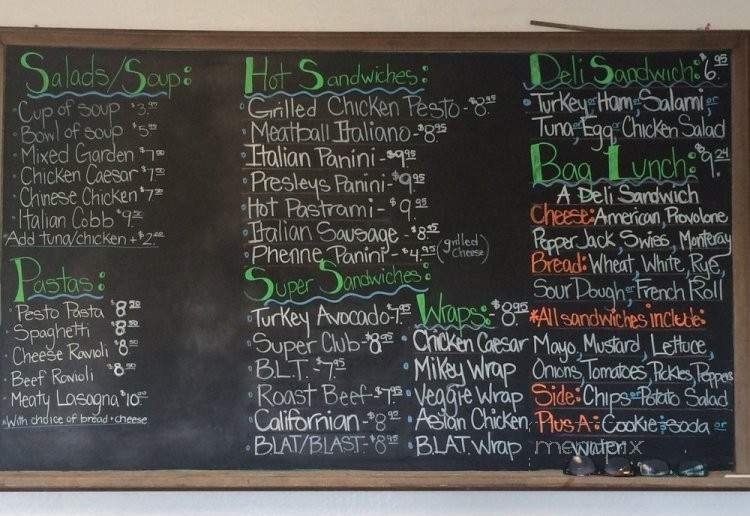 Salads/Soup:
Cup of soup
Bowl of soup
Mixed Garden
Chicken Caesar
Chinese Chicken
Italian Cobb
Add tuna/chicken +
Pastas:
Pesto Pasta
Spaghetti
Cheese Ravioli
Beef Ravioli
Meaty Lasagna
With choice of bread + cheese
Hot Sandwiches:
Grilled Chicken Pesto - 8.95
Meatball Italiano - $8.95
Italian Panini - $9.95
Presleys Panini - $9.95
Hot Pastrami - $9.95
Italian Sausage - $8.95
Phenne Panini - $4.95 (grilled cheese)
Super Sandwiches:
Turkey Avocado - 7.95
Super Club - $8.95
B.L.T. - $7.95
Roast Beef - $7.95
Californian - $8.95
BLAT/BLAST - $8.95
Wraps: - $8.95
Chicken Caesar
Mikey Wrap
Veggie Wrap
Asian Chicken
B.L.A.T. Wrap
Deli Sandwich: $6.95
Turkey or Ham, or Salami, or
Tuna, or Egg or Chicken Salad
Bag Lunch: $9.24
A Deli Sandwich
Cheese: American, Provolone
Pepper Jack, Swiss, Monteray
Bread: Wheat, White, Rye,
Sour Dough, or French Roll
*All sandwiches include:
Mayo, Mustard, Lettuce,
Onions, Tomatoes, Pickles, Peppers
Side: Chips or Potato Salad
Plus A: Cookie & soda or
water
menupix